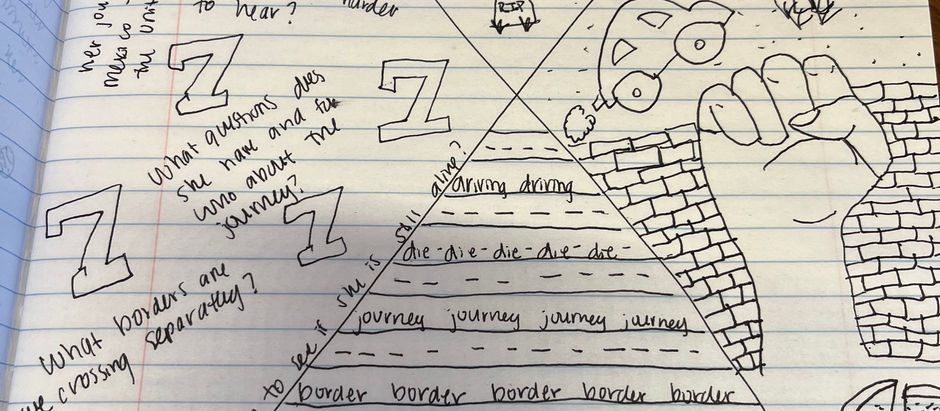 her jou
to hear?
harder
mexico
the unit
RIP
What questions does
she have and for
who about the
journey?
to see if she is still alive?
driving driving
die-die-die-die-die-
journey journey journey journey
border border border border border
What borders are
crossing separately?